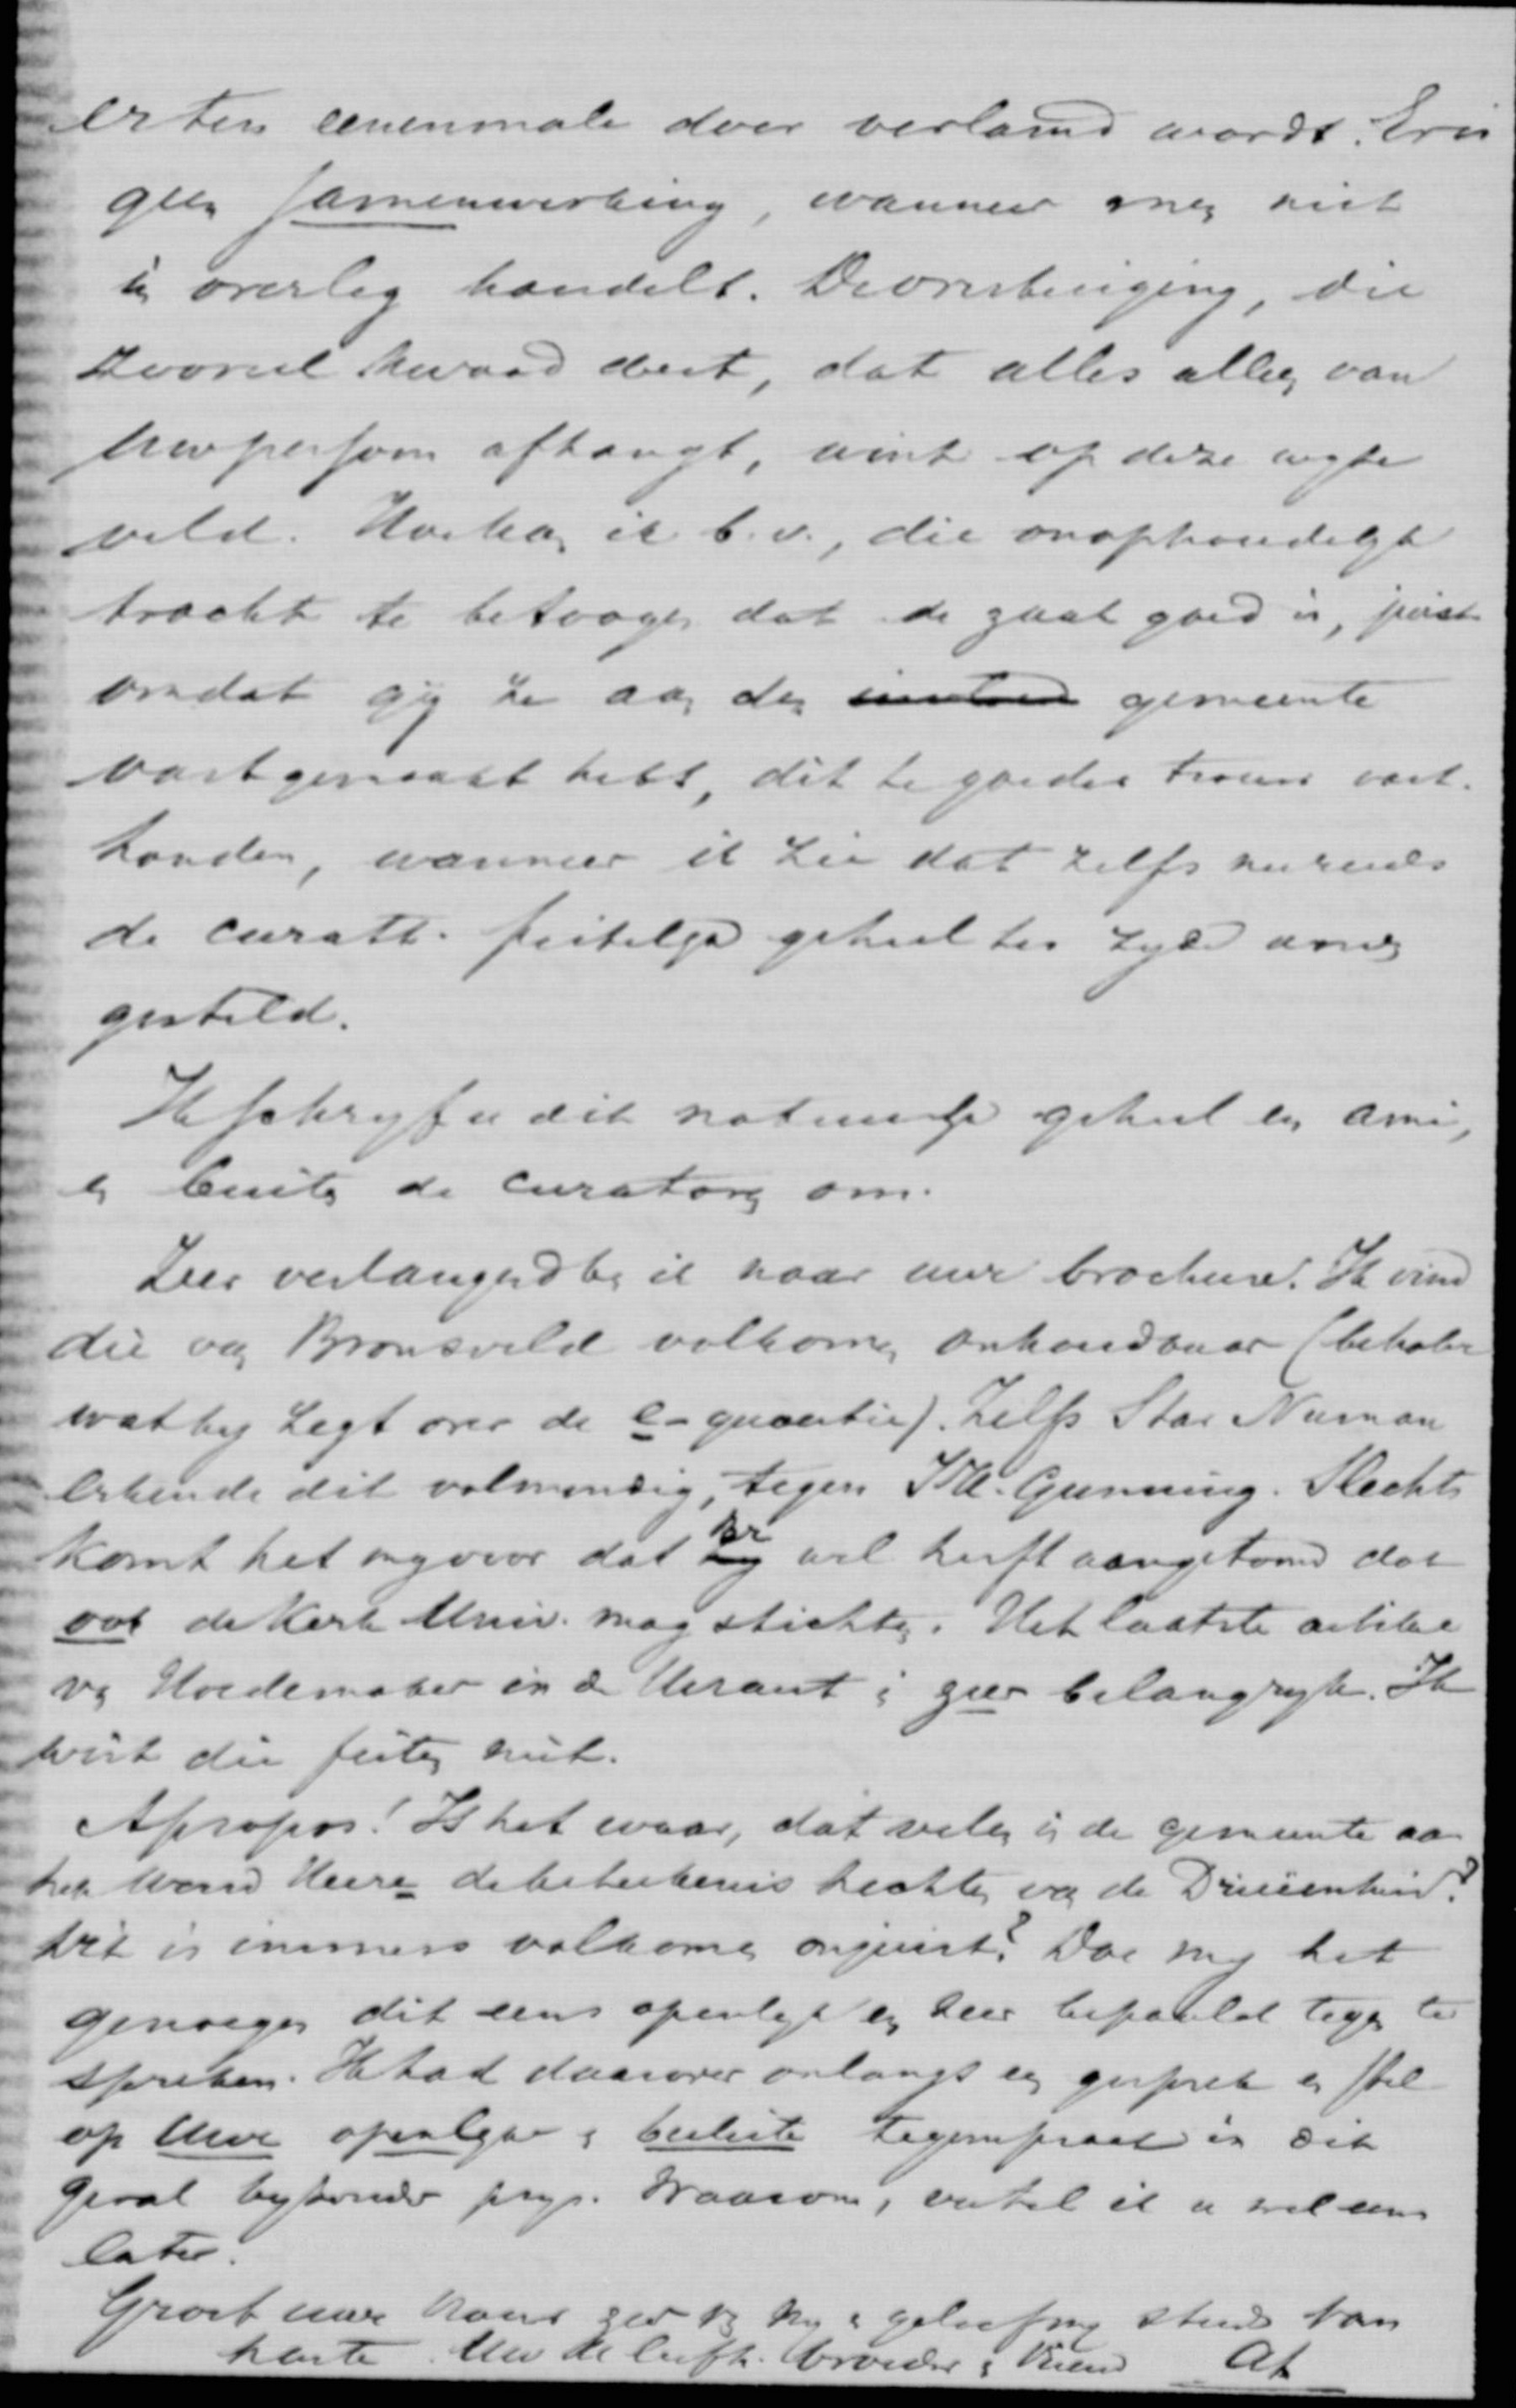 er ten eenenmale door verlamd wordt. Er is
geen samenwerking, wanneer men niet
in overleg handelt. De overtuiging, die
zooveel kwaad doet, dat alles alleen van
Uw persoon afhangt, wint op deze wyze
veld. Hoe kan ik b.v., die onophoudelyk
tracht te betoogen dat de zaak goed is, juist
omdat gij ze aan de gemeente
vastgemaakt hebt, dit te goeder trouw vast-
houden, wanneer ik zie dat zelfs
de curatt. feitelyk geheel ter zyde worden
gesteld.
Ik schryf u dit natuurlyk geheel en ami,
en buiten de curatoren om.
Zeer verlangend ben ik naar uwe brochure. Ik vind
die van Bronsveld volkomen onhoudbaar (behalve
wat hy zegt over de e-quaestie). Zelfs Star Numan
erkende dit volmondig, tegen J.H. Gunning. Slechts
komt het my voor dat Br wel heeft aangetoond dat
ook de Kerk Univ. mag stichten. Het laatste artikel
van Hoedemaker in de Heraut is zeer belangryk. Ik
wist die feiten niet.
Apropos! Is het waar, dat velen in de gemeente aan
het woord Heere de beteekenis hechten van de Drieëenheid?
Dit is immers volkomen onjuist? Doe my het
genoegen dit eens openlyk en zeer bepaald tegen te
spreken. Ik had daarover onlangs een gesprek en stel
op Uwe openlyke en besliste tegenspraak in dit
geval byzonder prys. Waarom, vertel ik u wel eens
later.
Groet uwe vrouw zeer van my en geloof my steeds van
harte Uw liefh. broeder en vriend